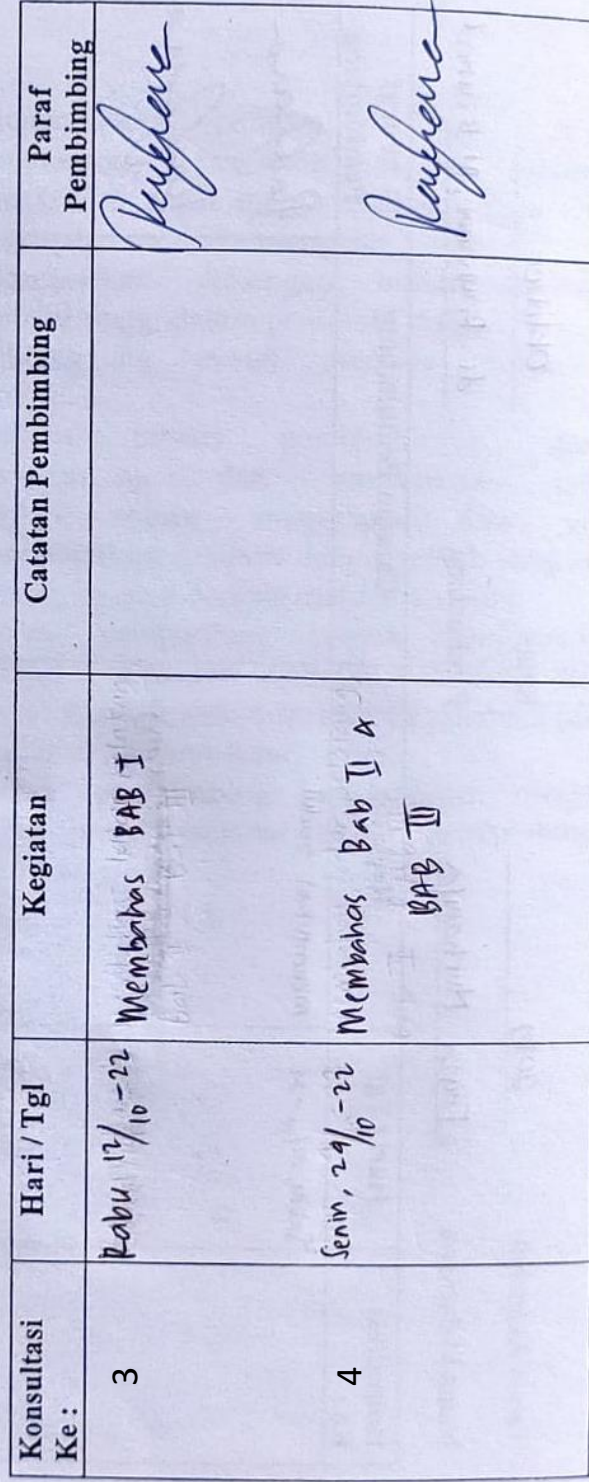 Konsultasi Ke : Hari / Tgl Kegiatan Catatan Pembimbing Paraf Pembimbing
3 Rabu 12/10-22 Membahas BAB I
4 Senin, 24/10-22 Membahas Bab II &
BAB III